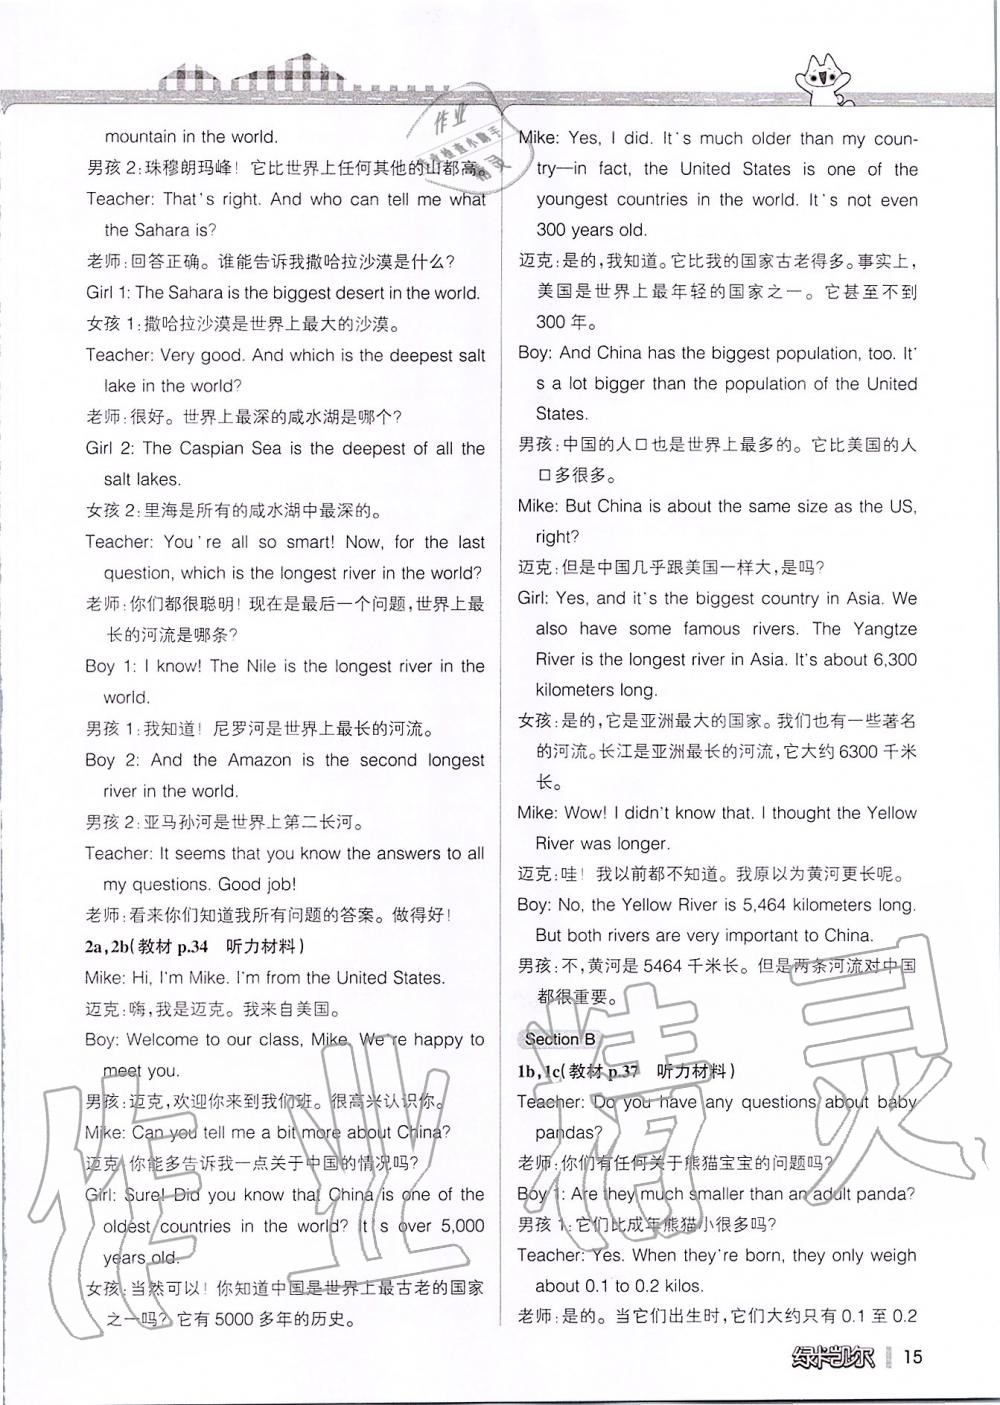 mountain in the world.
男孩 2:珠穆朗玛峰！它比世界上任何其他的山都高。
Teacher: That's right. And who can tell me what
the Sahara is?
老师:回答正确。谁能告诉我撒哈拉沙漠是什么?
Girl 1: The Sahara is the biggest desert in the world.
女孩 1:撒哈拉沙漠是世界上最大的沙漠。
Teacher: Very good. And which is the deepest salt
lake in the world?
老师:很好。世界上最深的咸水湖是哪个?
Girl 2: The Caspian Sea is the deepest of all the
salt lakes.
女孩 2:里海是所有的咸水湖中最深的。
Teacher: You're all so smart! Now, for the last
question, which is the longest river in the world?
老师:你们都很聪明！现在是最后一个问题,世界上最
长的河流是哪条?
Boy 1: I know! The Nile is the longest river in the
world.
男孩 1:我知道！尼罗河是世界上最长的河流。
Boy 2: And the Amazon is the second longest
river in the world.
男孩 2:亚马孙河是世界上第二长河。
Teacher: It seems that you know the answers to all
my questions. Good job!
老师:看来你们知道我所有问题的答案。做得好！
2a,2b(教材 p.34 听力材料)
Mike: Hi, I'm Mike. I'm from the United States.
迈克:嗨,我是迈克。我来自美国。
Boy: Welcome to our class, Mike. We're happy to
meet you.
男孩:迈克,欢迎你来到我们班。很高兴认识你。
Mike: Can you tell me a bit more about China?
迈克:你能多告诉我一点关于中国的情况吗?
Girl: Sure! Did you know that China is one of the
oldest countries in the world? It's over 5,000
years old.
女孩:当然可以！你知道中国是世界上最古老的国家
之一吗? 它有 5000 多年的历史。
Mike: Yes, I did. It's much older than my coun-
try—in fact, the United States is one of the
youngest countries in the world. It's not even
300 years old.
迈克:是的,我知道。它比我的国家古老得多。事实上,
美国是世界上最年轻的国家之一。它甚至不到
300 年。
Boy: And China has the biggest population, too. It'
s a lot bigger than the population of the United
States.
男孩:中国的人口也是世界上最多的。它比美国的人
口多很多。
Mike: But China is about the same size as the US,
right?
迈克:但是中国几乎跟美国一样大,是吗?
Girl: Yes, and it's the biggest country in Asia. We
also have some famous rivers. The Yangtze
River is the longest river in Asia. It's about 6,300
kilometers long.
女孩:是的,它是亚洲最大的国家。我们也有一些著名
的河流。长江是亚洲最长的河流,它大约 6300 千米
长。
Mike: Wow! I didn't know that. I thought the Yellow
River was longer.
迈克:哇！我以前都不知道。我原以为黄河更长呢。
Boy: No, the Yellow River is 5,464 kilometers long.
But both rivers are very important to China.
男孩:不,黄河是 5464 千米长。但是两条河流对中国
都很重要。
Section B
1b,1c(教材 p.37 听力材料)
Teacher: Do you have any questions about baby
pandas?
老师:你们有任何关于熊猫宝宝的问题吗?
Boy 1: Are they much smaller than an adult panda?
男孩 1:它们比成年熊猫小很多吗?
Teacher: Yes. When they're born, they only weigh
about 0.1 to 0.2 kilos.
老师:是的。当它们出生时,它们大约只有 0.1 至 0.2
绿卡凯尔 15
作业精灵